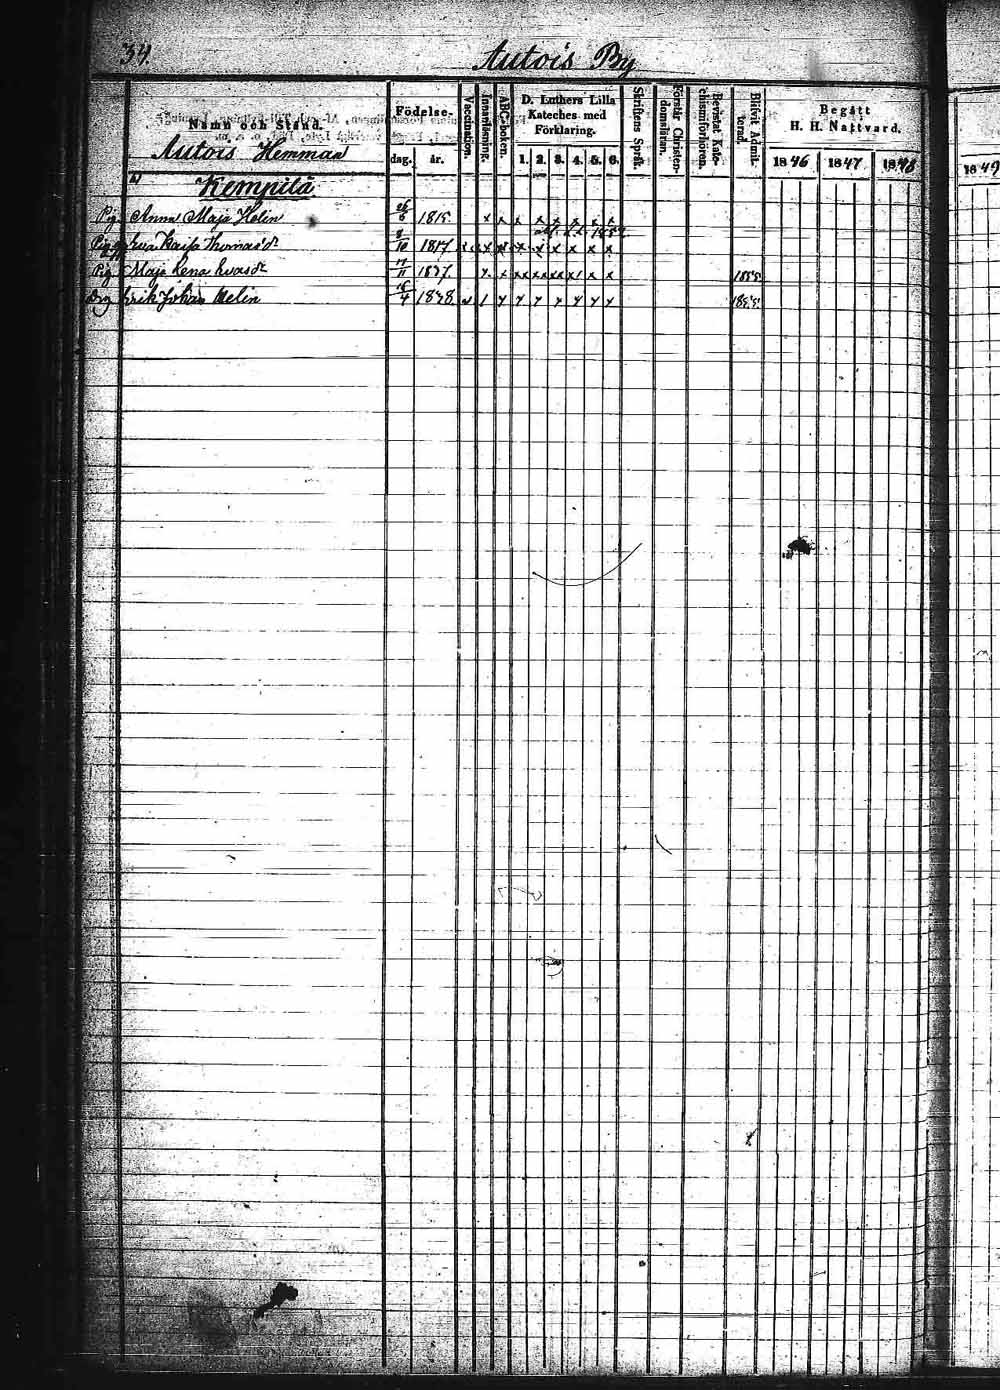 34.
Autois By
Namn och Stånd.
Födelse.
dag. år.
Vaccination.
Innanläsning.
ABC-boken.
D. Luthers Lilla
Kateches med
Förklaring.
1. 2. 3. 4. 5. 6.
Skriftens Språk.
Förstår Christen-
domsläran.
Bevistat Kate-
chismiförhören.
Blifvit Admit-
terad.
Begått
H. H. Nattvard.
1846 1847 1848 1849
Autois Hemman
Kempilä
Pig. Anna Maja Helin 26/6 1815 x x x x x x x x
Kaisa Thomasdr 8/10 1817
Pig. Maja Lena 11 1837 1855
Drg Erik Johan Helin 16/4 1838